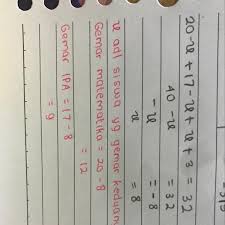 20-x + 17-x + x + 3 = 32
40 - x = 32
- x = -8
x = 8
x adl siswa yg gemar keduanya
Gemar matematika = 20 - 8
= 12
Gemar IPA = 17 - 8
= 9